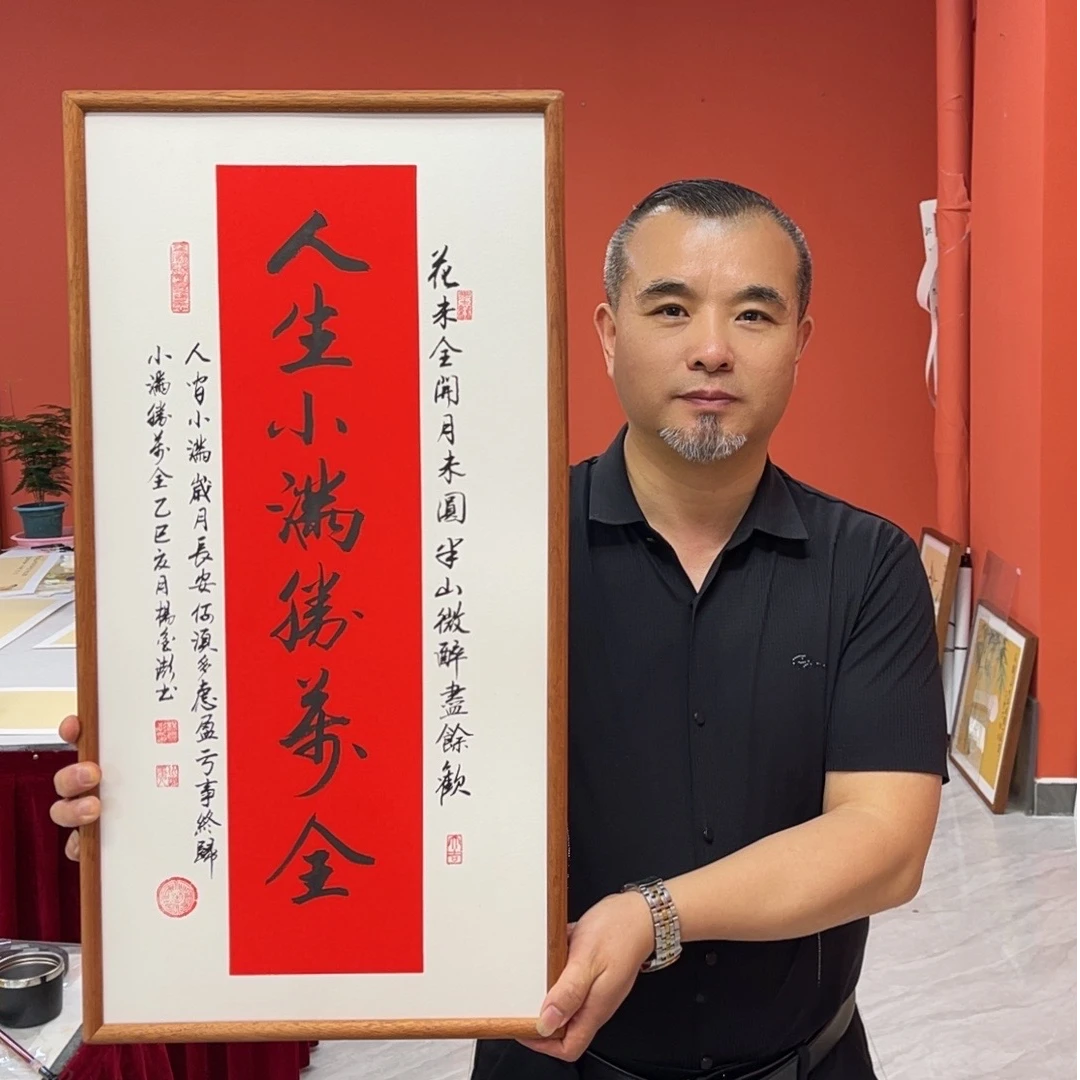 花未全開月未圓半山微醉盡餘歡
人生小滿勝萬全
人間小滿歲月長安何須多慮盈亏事終歸
小滿勝萬全乙巳夏月楊金澎书